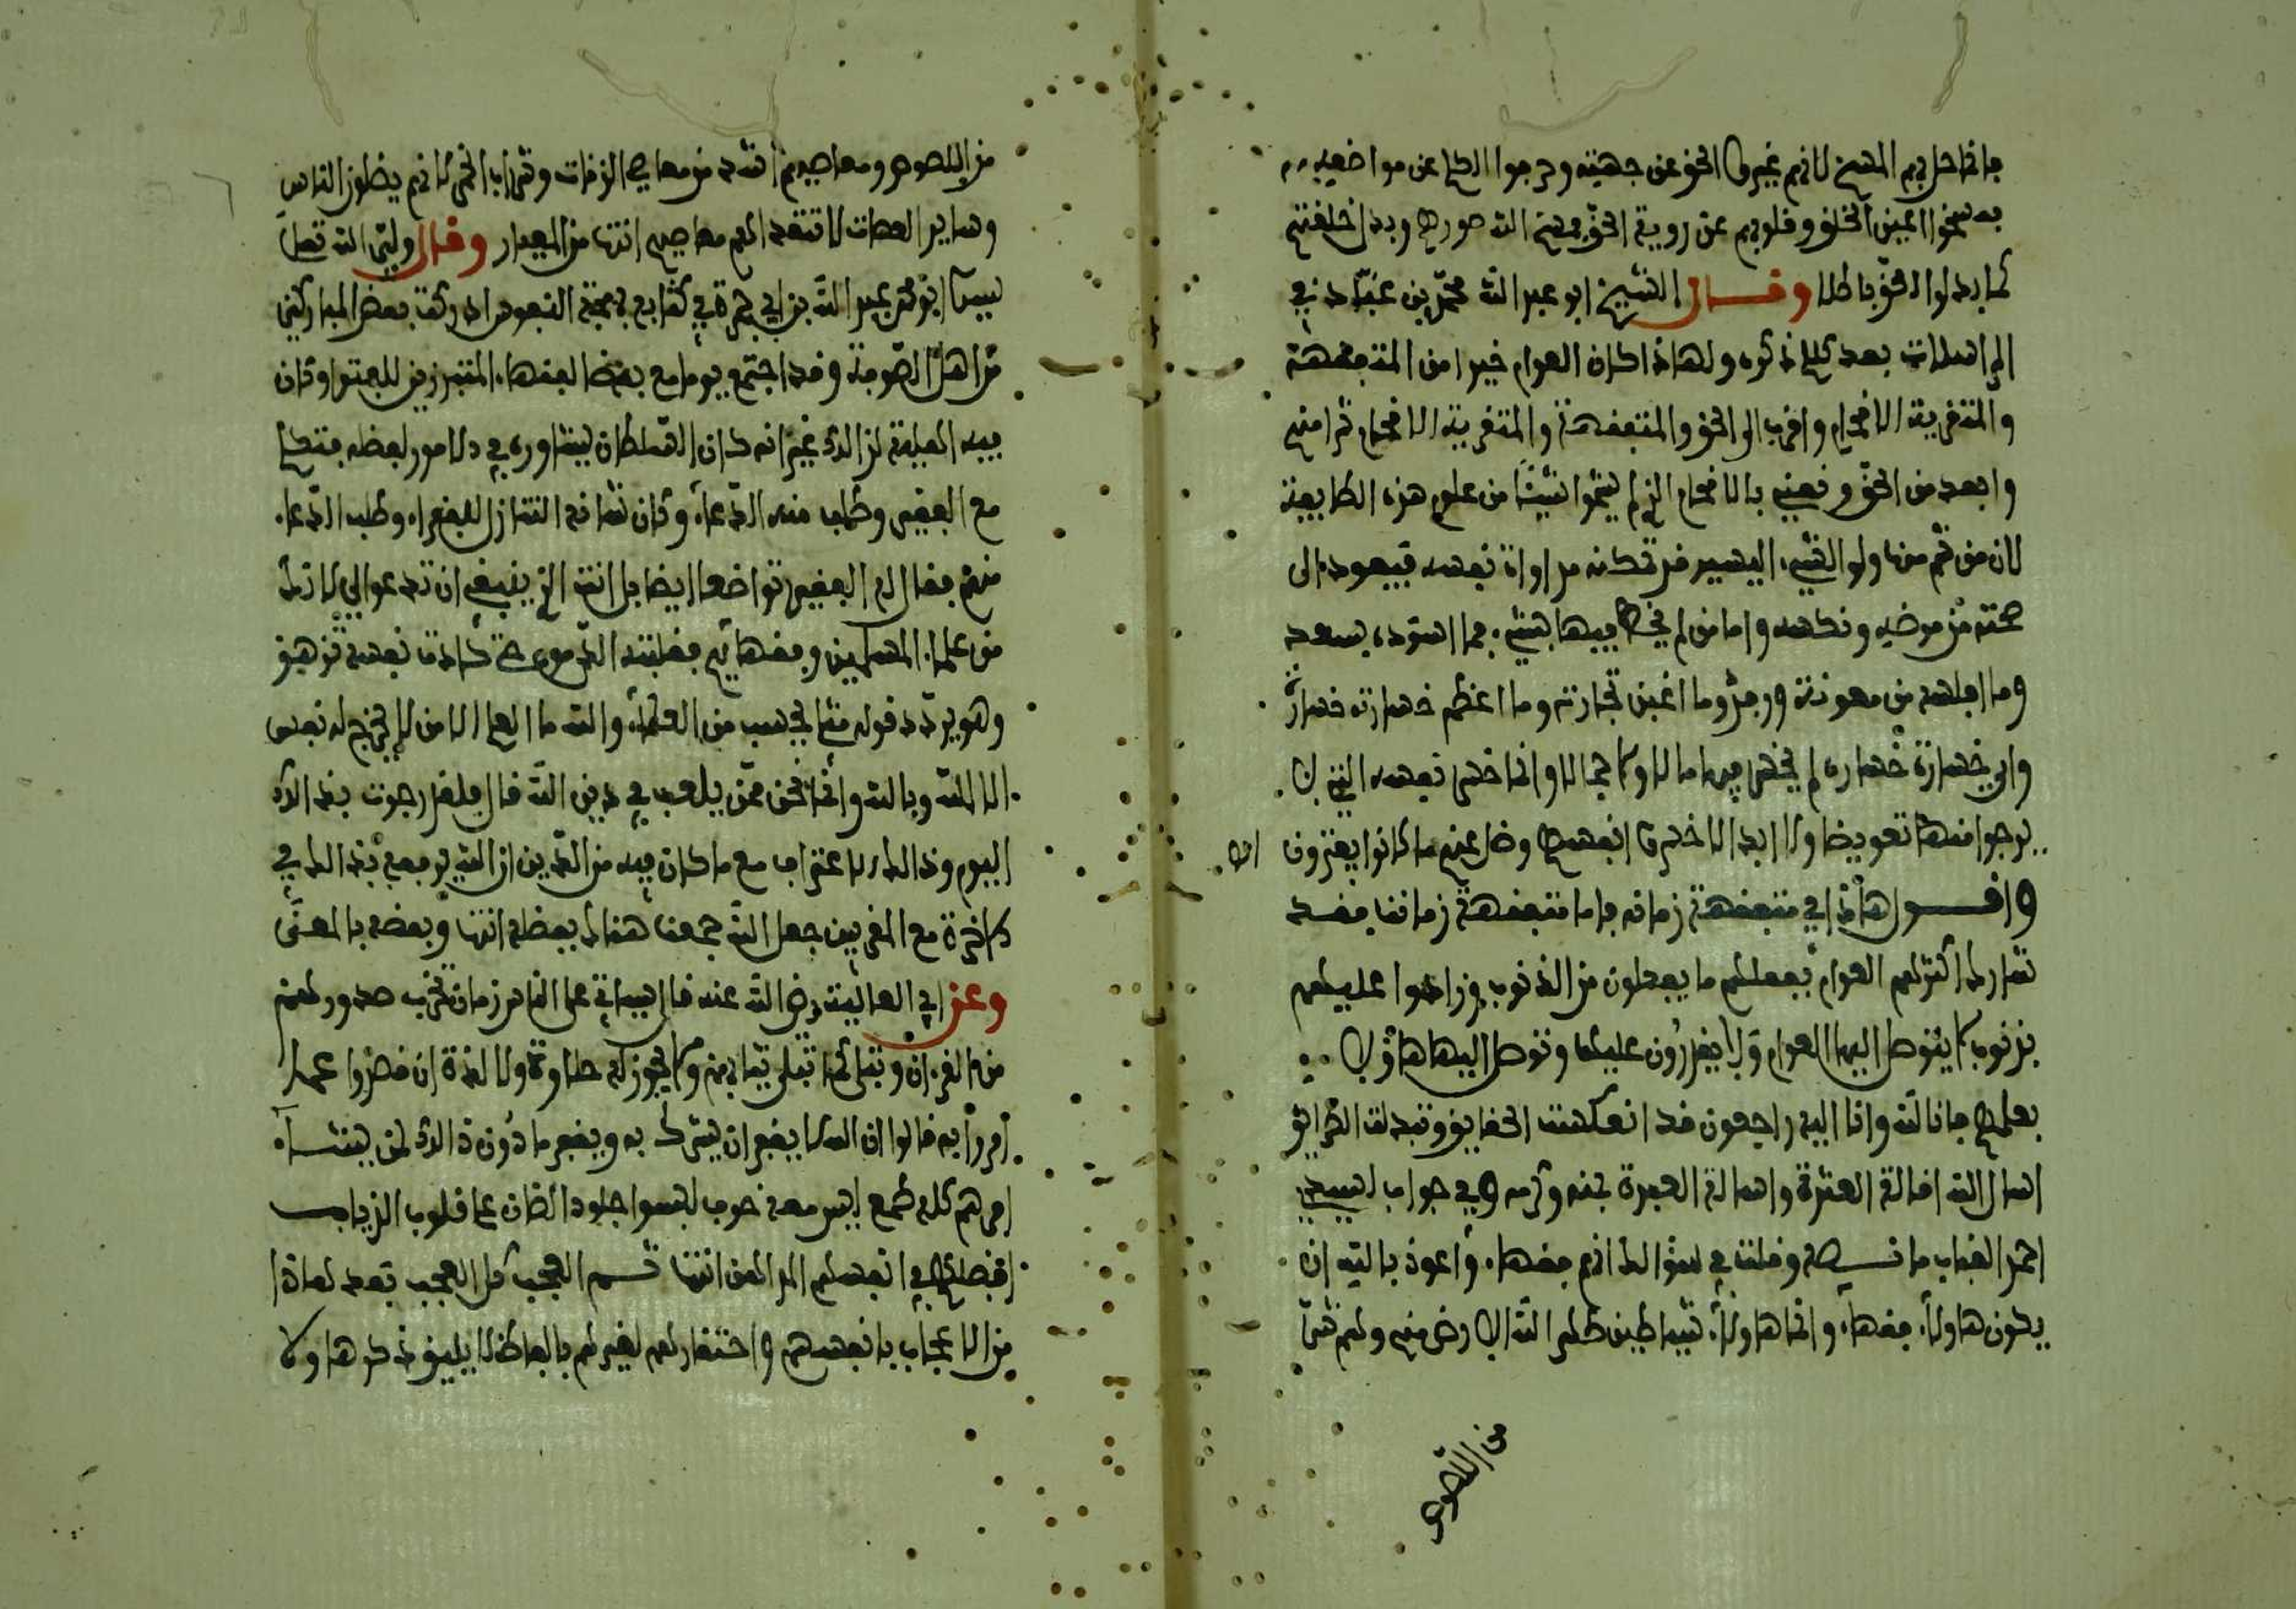 فإنما حل بهم المسخ لانهم غيروا الحق عن جهته وحرفوا الكلم عن مواضعه
فمسخوا اعين الخلق وقلوبهم عن روية الحق فمسخ الله صورهم وبدل خلقتهم
كما بدلوا الحق باطلا وقال الشيخ ابو عبد الله محمد بن عباد في
الرسالات بعد كلام ذكره ولهاذا كان العوام خيرا من المتفقهة
والمتقرية الاقحام واقرب الى الحق والمتفقهة والمتقرية الاقحام شر منهم
وابعد من الحق ونعني بالاقحام الذين لم يشموا شيئا من علوم هذه الطايفة
لان من شم منها ولو الشيء اليسير قد تمكنه مداواة نفسه فيعود الى
صحته من مرضه ونكسه واما من لم يحظ فيها بشيء فما اسود بسعد
وما افلسه من معونة ورفد وما اغبن تجارته وما اعظم خسارته خسارة
واي خسارة خسارة لم يخسر فيها مالا ولا جمالا وانما خسر نفسه التي لا
يرجوا منها تعويضا ولا ابدالا خسروا انفسهم وضل عنهم ما كانوا يفترون
واقول هاذا في متفقهة زمانه فاما متفقهة زماننا فقد
شاركوا كثرتهم العوام بفعلهم ما يفعلون من الذنوب وزادوا عليهم
بذنوب لا يتوصل اليها العوام ولا يقدرون عليها وتوصل اليها هاؤلا
بعلمهم فانا لله وانا اليه راجعون قد انعكست الحقايق وتبدلت الطرايق
اسال الله اقالة العثرة واسالة العبرة بمنه وكرمه وفي جواب لسيدي
احمد القباب ما نصه وقلت في سؤالك انهم فقهاء واعوذ بالله ان
يكون هاولاء فقهاء وانما هاولاء شياطين طهر الله الارض منهم ولهم شر
من اللصوص
من اللصوص ومعاصيهم اشد من معاصي الزنات وشراب الخمر لانهم يضلون الناس
وساير العصات لا تتعداهم معاصيهم انتها من المعيار وقال ولي الله تعلى
سيدنا ابو محمد عبد الله بن ابي جمرة في كتابه بهجة النفوس ادركت بعض المباركين
من اهل الصوفة وقد اجتمع يوما مع بعض الفقهاء المتبرزين للفتوا وكان
فيه الميل لذالك غير انه كان السلطان يشاوره في الامور لعظه فتكلم
مع الفقير وطلب منه الدعاء وكان شانه التنازل للفقراء وطلب الدعاء
منهم فقال له الفقير تواضعا ايضا بل انت الذي ينبغي ان تدعوا لي لانك
من علماء المسلمين وفقهايهم فغلبته الدموع حتى كادت نفسه تزهق
وهو يردد قوله مثلي يحسب من العلماء والله ما العالم الا من لم يخرج له نفس
الا لله وبالله وانما نحن ممن يلعب في دين الله قال فلقد رجوت بذالك
اليوم وذالك الاعتراف مع ما كان فيه من الدين ان الله يرفعه بذالك في
الاخرة مع المقربين جعل الله جمعنا هنالك بفضله انتها وبعضه بالمعنى
وعن ابي العالية رضي الله عنه قال سياتي على الناس زمان تخرب صدورهم
من القرءان وتبلى كما تبلى ثيابهم ولا يجدون له حلاوة ولا لذة ان قصروا عما
امروا به قالوا ان الله لا يغفر ان يشرك به ويغفر ما دون ذالك لمن يشاء
امرهم كله طمع ليس معه خوف لبسوا جلود الضان على قلوب الذياب
افضلهم في انفسهم المداهن انتها ثم العجب كل العجب بعد هاذا
من الاعجاب بانفسهم واحتقارهم لغيرهم بالفاظ لا يليق ذكرها ولا